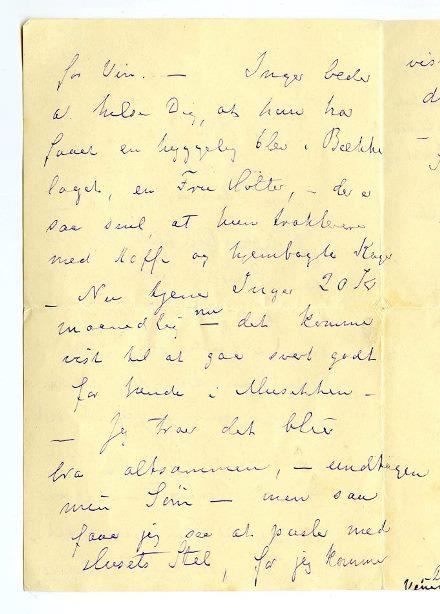 for Vin. — Inger beder
at hilse Dig, at hun har
faaet en hyggelig Elev i Bække
laget, en Fru Holter, – der er
saa snil, at hun trakterer
med Kaffe og hjembagte Kager
– Nu tjener Inger 20 Kr
maanedlig nu – det kommer
vist til at gaa svert godt
for hende i Musikken –
– Jeg tror det blir
bra altsammen, – undtagen
min Søn – men saa
faar jeg se at pusle med
Husets Stel, for jeg kommer
vis
d
–